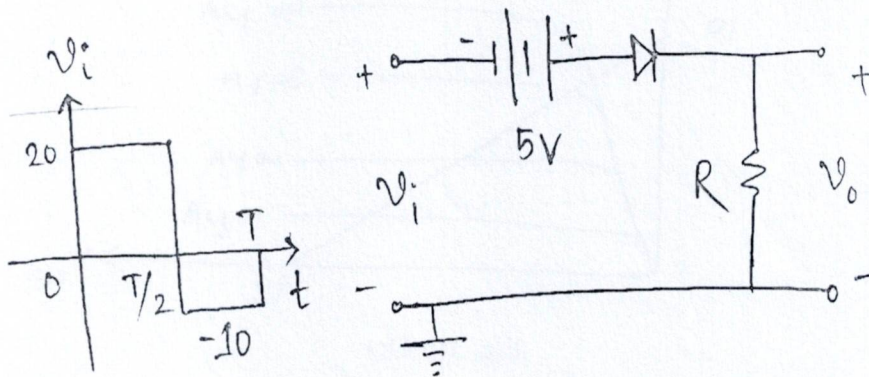 v_i
20
0
T/2
T
t
-10
+
-
+
5V
v_i
R
v_o
+
-
-